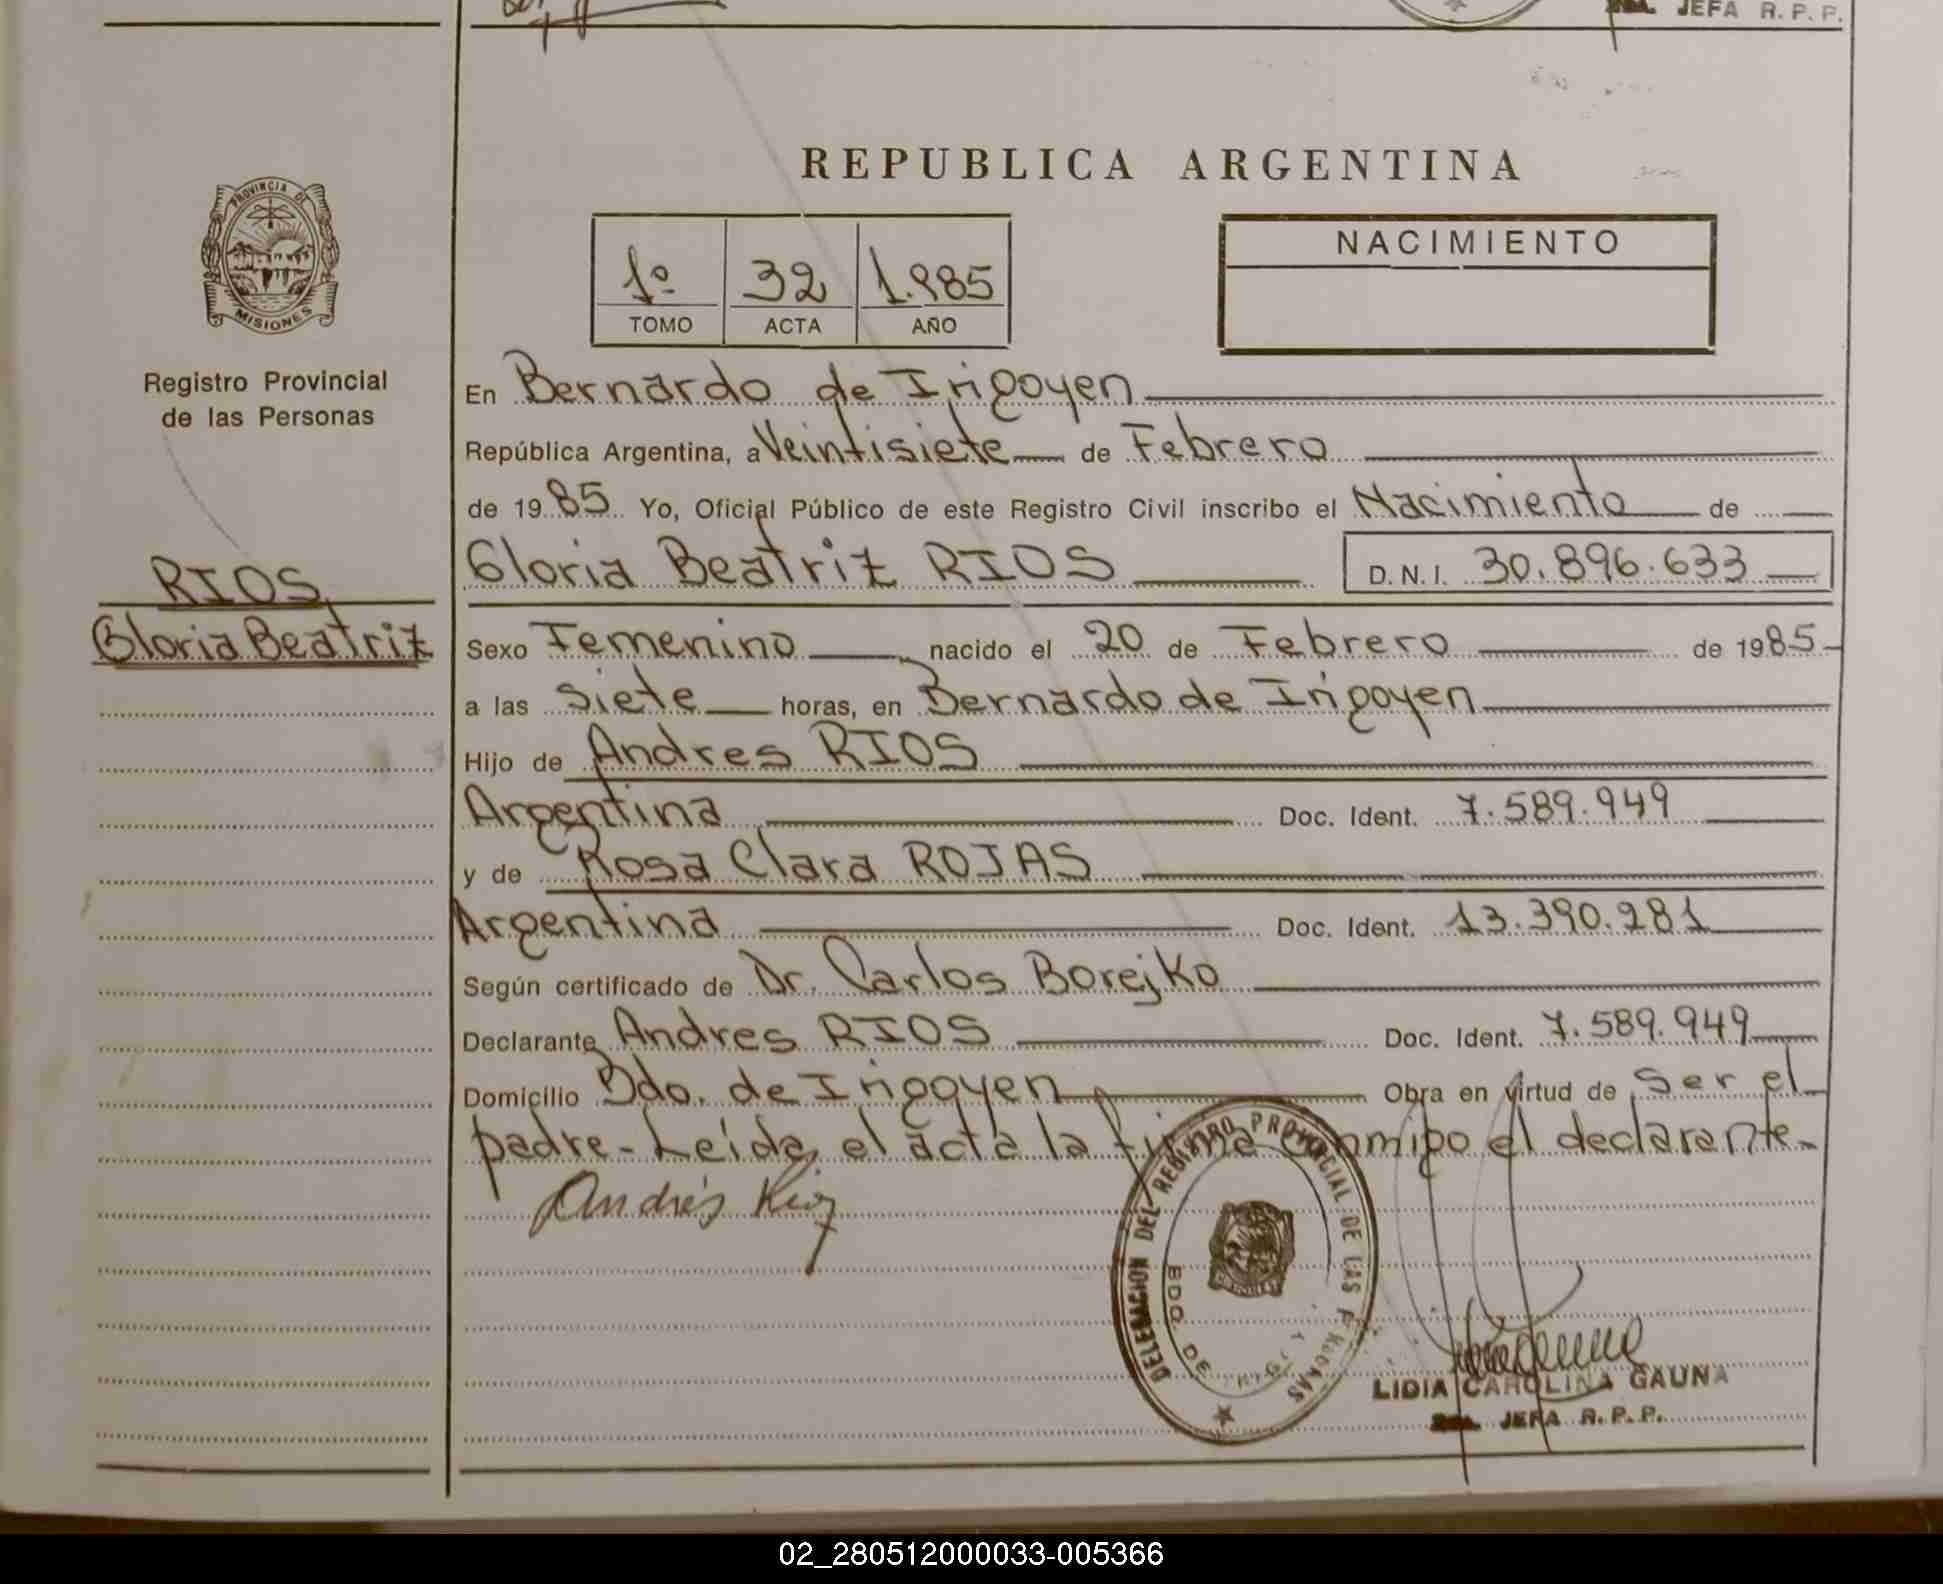 JEFA R. P. P.
PROVINCIA DE
MISIONES
Registro Provincial
de las Personas
RIOS
Gloria Beatriz
REPUBLICA ARGENTINA
1º 32 1.985
TOMO ACTA AÑO
NACIMIENTO
En Bernardo de Irigoyen
República Argentina, a Veintisiete de Febrero
de 1985 Yo, Oficial Público de este Registro Civil inscribo el Nacimiento de
Gloria Beatriz RIOS D.N.I. 30.896.633
Sexo Femenino nacido el 20 de Febrero de 1985
a las siete horas, en Bernardo de Irigoyen
Hijo de Andres RIOS
Argentina Doc. Ident. 7.589.949
y de Rosa Clara ROJAS
Argentina Doc. Ident. 13.390.281
Según certificado de Dr. Carlos Borejko
Declarante Andres RIOS Doc. Ident. 7.589.949
Domicilio Bdo. de Irigoyen Obra en virtud de Ser el
padre- Leída el acta la firma conmigo el declarante-
Andrés Rios
DELEGACION DEL REGISTRO PROVINCIAL DE LAS PERSONAS
BDO. DE IRIGOYEN
LIDIA CAROLINA GAUNA
JEFA R. P. P.
02_280512000033-005366